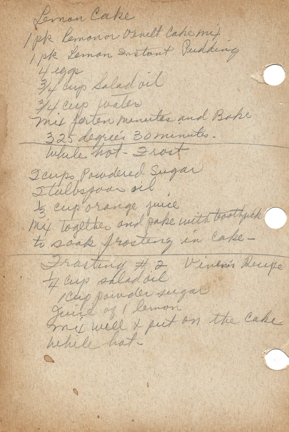 Lemon Cake
1 pk Lemon or Vanilla Cake mix
1 pk Lemon Instant Pudding
4 eggs
3/4 cup Salad oil
3/4 cup water
Mix for ten minutes and Bake
325 degrees 30 minutes.
While hot - Frost
2 cups Powdered Sugar
2 tablespoons oil
1/3 cup orange juice
Mix together and poke with toothpick
to soak frosting in cake -
Frosting # 2 Recipe
1/4 cup salad oil
1 cup powder sugar
Juice of 1 lemon
Mix well & put on the cake
while hot -